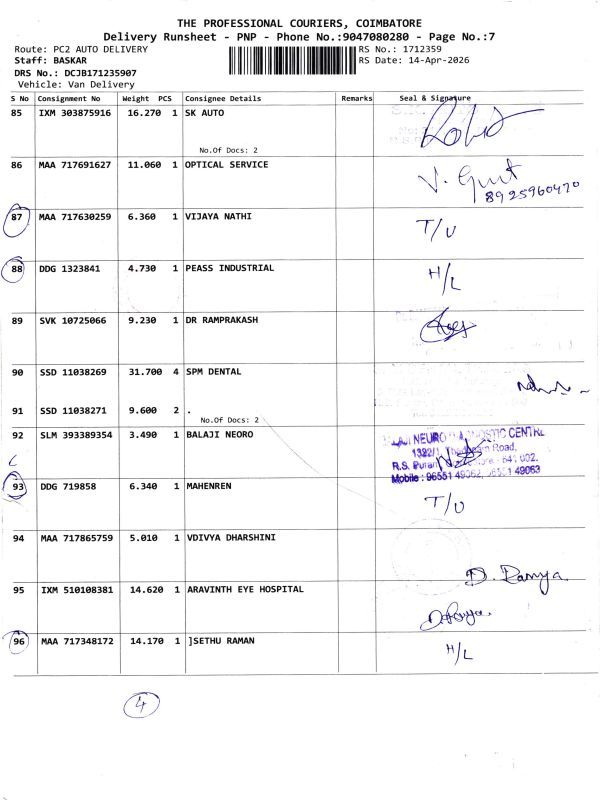 THE PROFESSIONAL COURIERS, COIMBATORE
Delivery Runsheet - PNP - Phone No.:9047080280 - Page No.:7
Route: PC2 AUTO DELIVERY RS No.: 1712359
Staff: BASKAR RS Date: 14-Apr-2026
DRS No.: DCJB171235907
Vehicle: Van Delivery
S No Consignment No Weight PCS Consignee Details Remarks Seal & Signature
85 IXM 303875916 16.270 1 SK AUTO
No.Of Docs: 2
86 MAA 717691627 11.060 1 OPTICAL SERVICE
8925960470
87 MAA 717630259 6.360 1 VIJAYA NATHI T/U
88 DDG 1323841 4.730 1 PEASS INDUSTRIAL H/L
89 SVK 10725066 9.230 1 DR RAMPRAKASH
90 SSD 11038269 31.700 4 SPM DENTAL
91 SSD 11038271 9.600 2 .
No.Of Docs: 2
92 SLM 393389354 3.490 1 BALAJI NEORO
NEURO DIAGNOSTIC CENTRE
Road,
R.S. Puram 641 002.
Mobile : 96551 49062, 96551 49063
93 DDG 719858 6.340 1 MAHENREN T/U
94 MAA 717865759 5.010 1 VDIVYA DHARSHINI
D. Ramya
95 IXM 510108381 14.620 1 ARAVINTH EYE HOSPITAL
D. Ramya
96 MAA 717348172 14.170 1 ]SETHU RAMAN H/L
4